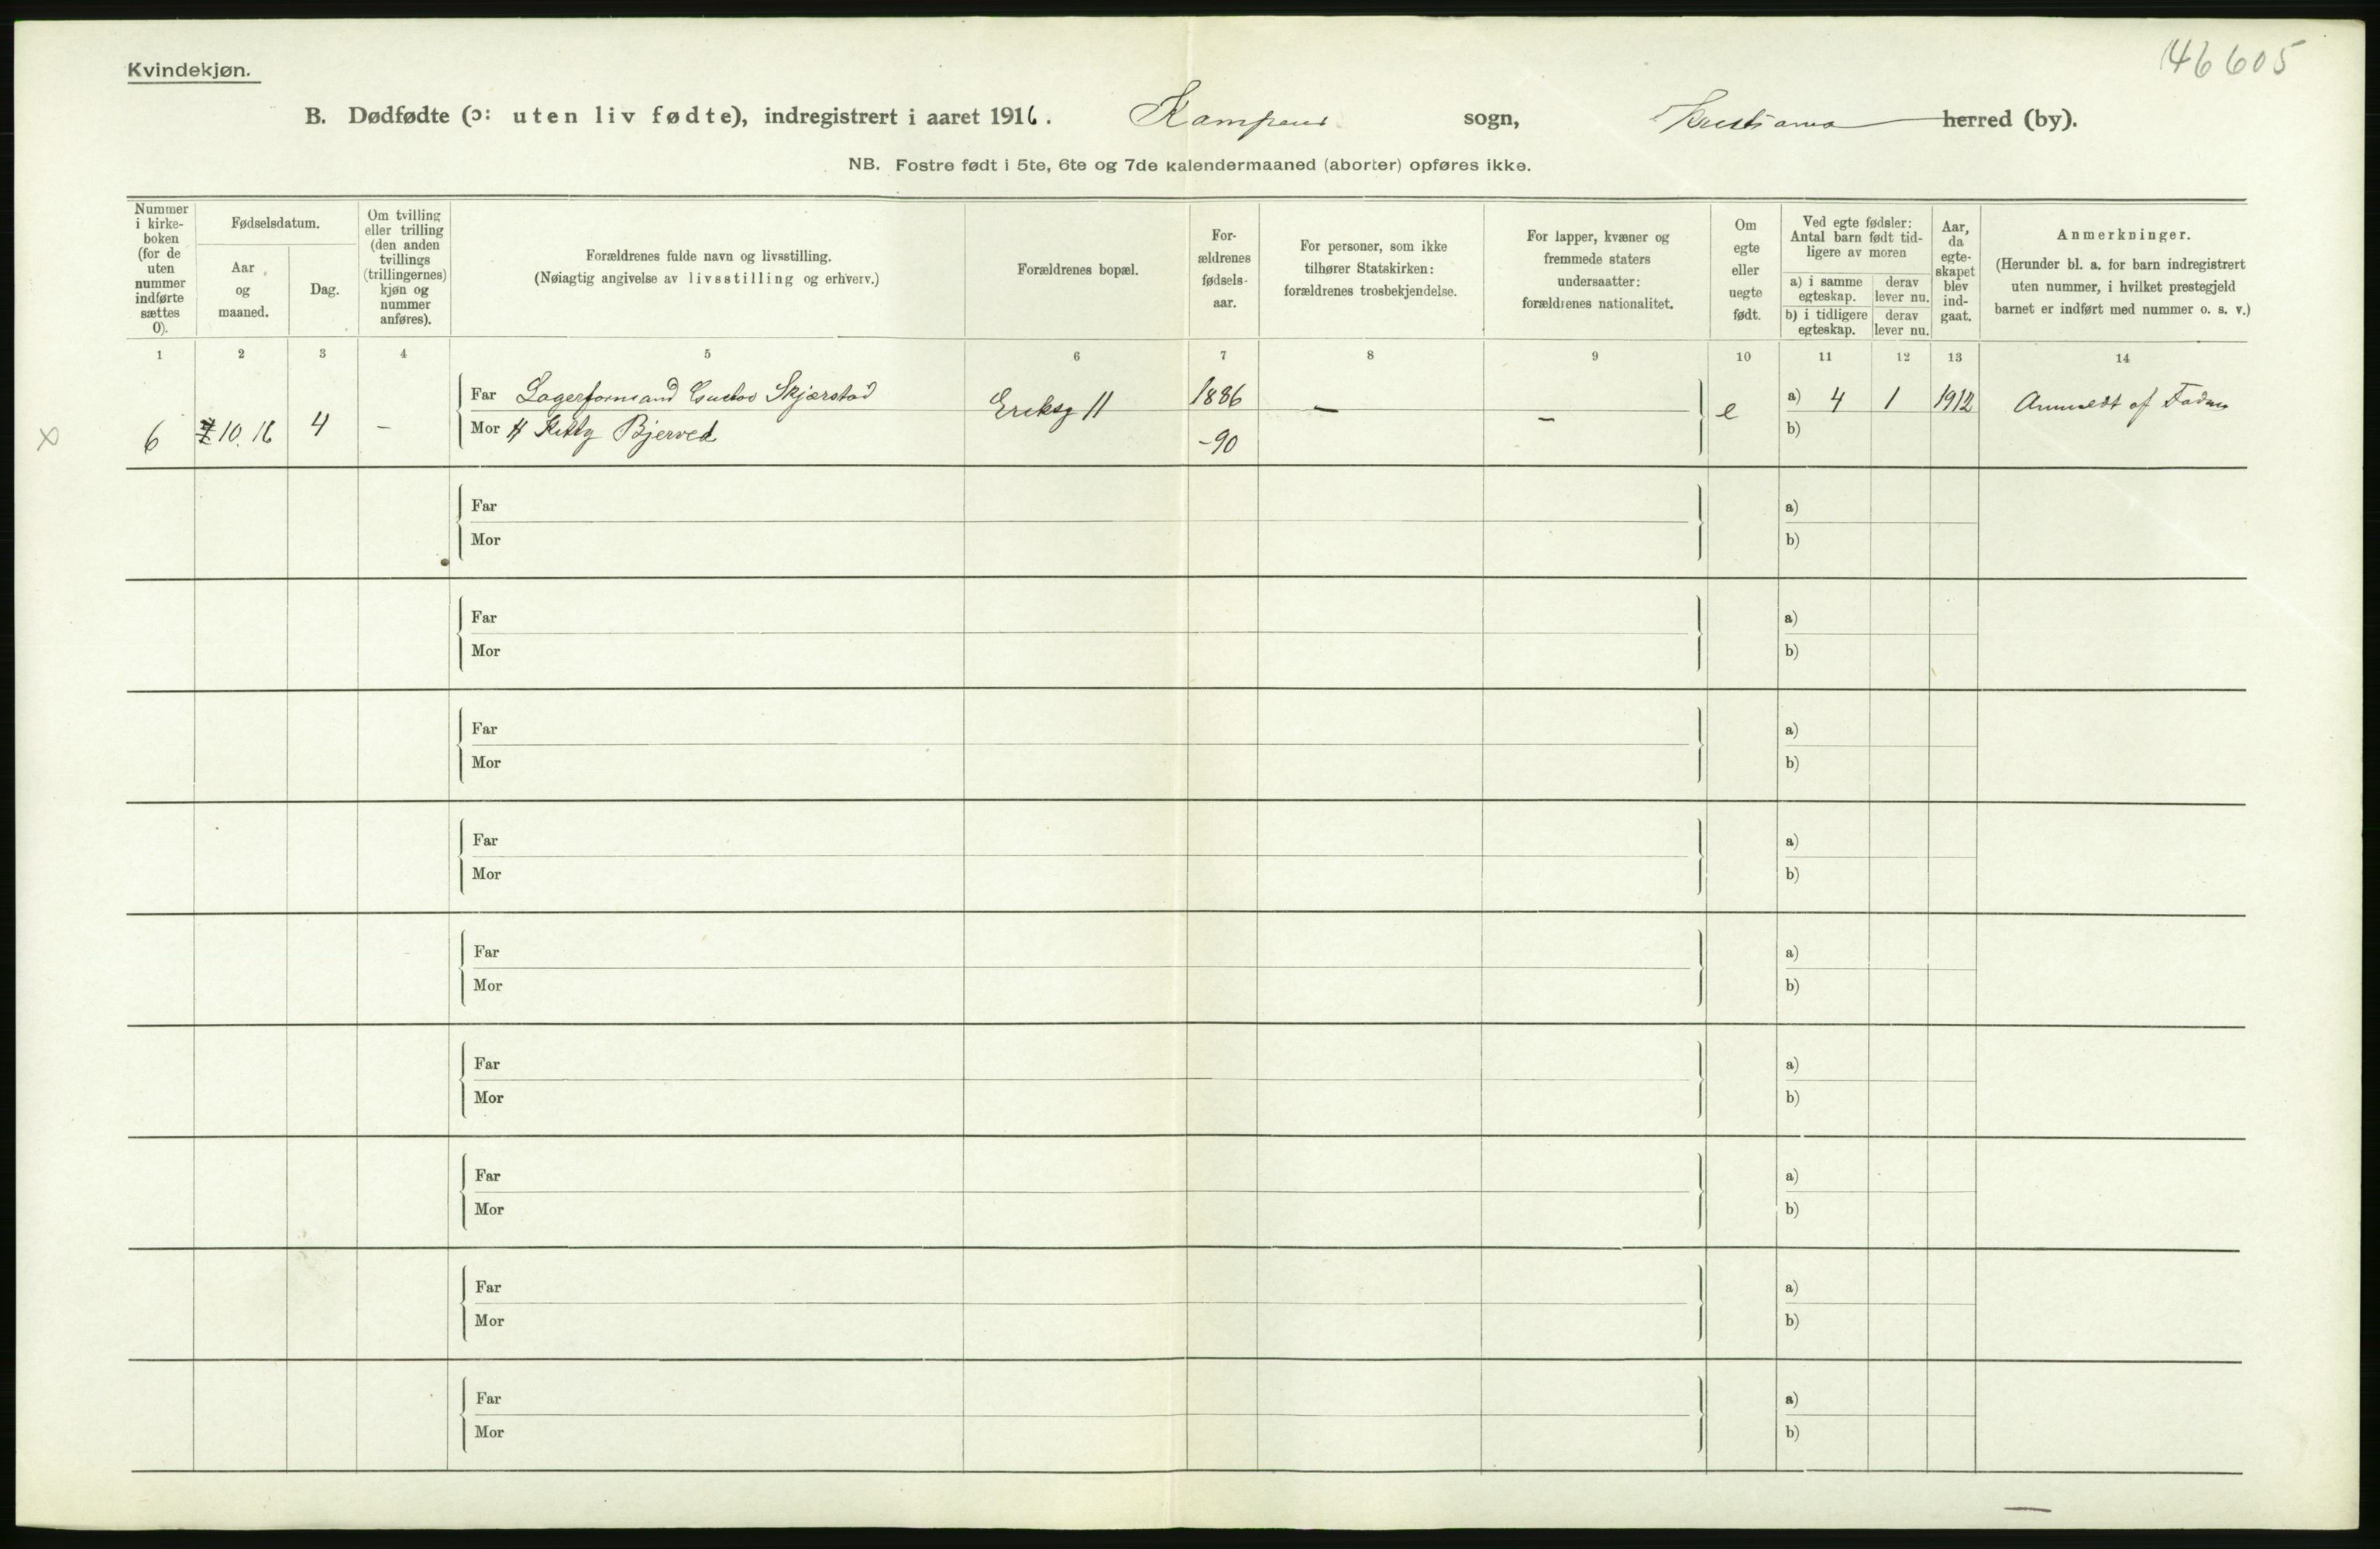 146605
Kvindekjøn.
B. Dødfødte (ɔ: uten liv fødte), indregistrert i aaret 1916. Kampens sogn, Kristiania herred (by).
NB. Fostre født i 5te, 6te og 7de kalendermaaned (aborter) opføres ikke.
Nummer i kirke-boken (for de uten nummer indførte sættes 0).
Fødselsdatum.
Aar og maaned.
Dag.
Om tvilling eller trilling (den anden tvillings (trillingernes) kjøn og nummer anføres).
Forældrenes fulde navn og livsstilling.
(Nøiagtig angivelse av livsstilling og erhverv.)
Forældrenes bopæl.
For-ældrenes fødsels-aar.
For personer, som ikke tilhører Statskirken: forældrenes trosbekjendelse.
For lapper, kvæner og fremmede staters undersaatter: forældrenes nationalitet.
Om egte eller uegte født.
Ved egte fødsler: Antal barn født tid-ligere av moren
a) i samme egteskap.
derav lever nu.
b) i tidligere egteskap.
derav lever nu.
Aar, da egte-skapet blev ind-gaat.
Anmerkninger.
(Herunder bl. a. for barn indregistrert uten nummer, i hvilket prestegjeld barnet er indført med nummer o. s. v.)
1 2 3 4 5 6 7 8 9 10 11 12 13 14
Far Lagerformand Gustav Skjærstad Eriksg 11 1886 — — e a) 4 1 1912 Anmeldt af Faderen
6 10. 16 4 – Mor Kitty Bjerved -90 b)
Far a)
Mor b)
Far a)
Mor b)
Far a)
Mor b)
Far a)
Mor b)
Far a)
Mor b)
Far a)
Mor b)
Far a)
Mor b)
Far a)
Mor b)
Far a)
Mor b)